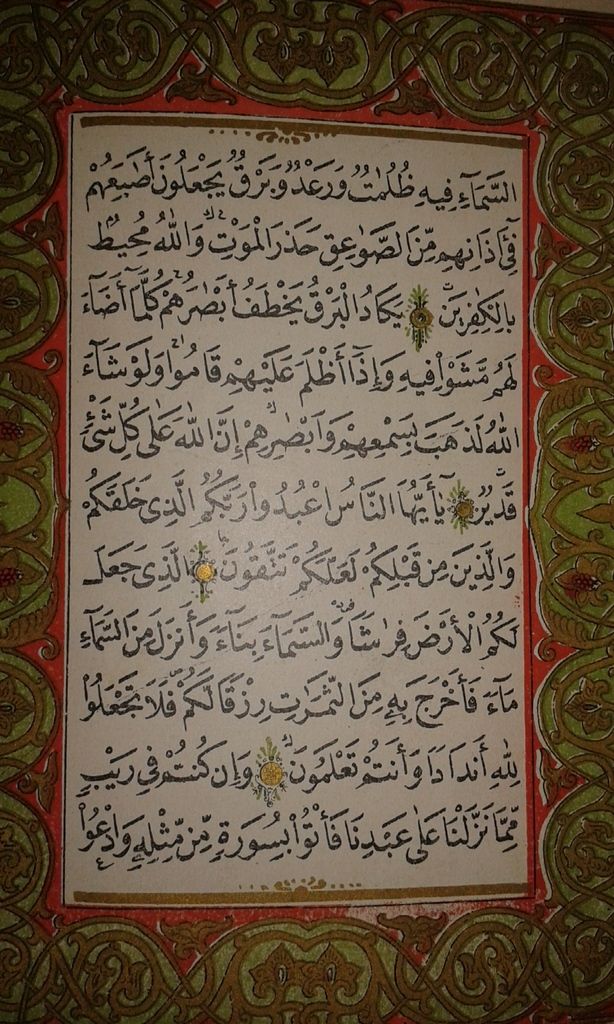 السَّمَاءِ فِيهِ ظُلُمَٰتٌ وَرَعْدٌ وَبَرْقٌ يَجْعَلُونَ أَصَٰبِعَهُمْ
فِىٓ ءَاذَانِهِم مِّنَ الصَّوَٰعِقِ حَذَرَ الْمَوْتِ وَاللَّهُ مُحِيطٌ
بِالْكَٰفِرِينَ يَكَادُ الْبَرْقُ يَخْطَفُ أَبْصَٰرَهُمْ كُلَّمَا أَضَاءَ
لَهُم مَّشَوْا فِيهِ وَإِذَا أَظْلَمَ عَلَيْهِمْ قَامُوا وَلَوْ شَاءَ
اللَّهُ لَذَهَبَ بِسَمْعِهِمْ وَأَبْصَٰرِهِمْ إِنَّ اللَّهَ عَلَىٰ كُلِّ شَىْءٍ
قَدِيرٌ يَٰأَيُّهَا النَّاسُ اعْبُدُوا رَبَّكُمُ الَّذِى خَلَقَكُمْ
وَالَّذِينَ مِن قَبْلِكُمْ لَعَلَّكُمْ تَتَّقُونَ الَّذِى جَعَلَ
لَكُمُ الْأَرْضَ فِرَٰشًا وَالسَّمَاءَ بِنَاءً وَأَنزَلَ مِنَ السَّمَاءِ
مَاءً فَأَخْرَجَ بِهِ مِنَ الثَّمَرَٰتِ رِزْقًا لَّكُمْ فَلَا تَجْعَلُوا
لِلَّهِ أَندَادًا وَأَنتُمْ تَعْلَمُونَ وَإِن كُنتُمْ فِى رَيْبٍ
مِّمَّا نَزَّلْنَا عَلَىٰ عَبْدِنَا فَأْتُوا بِسُورَةٍ مِّن مِّثْلِهِ وَادْعُوا